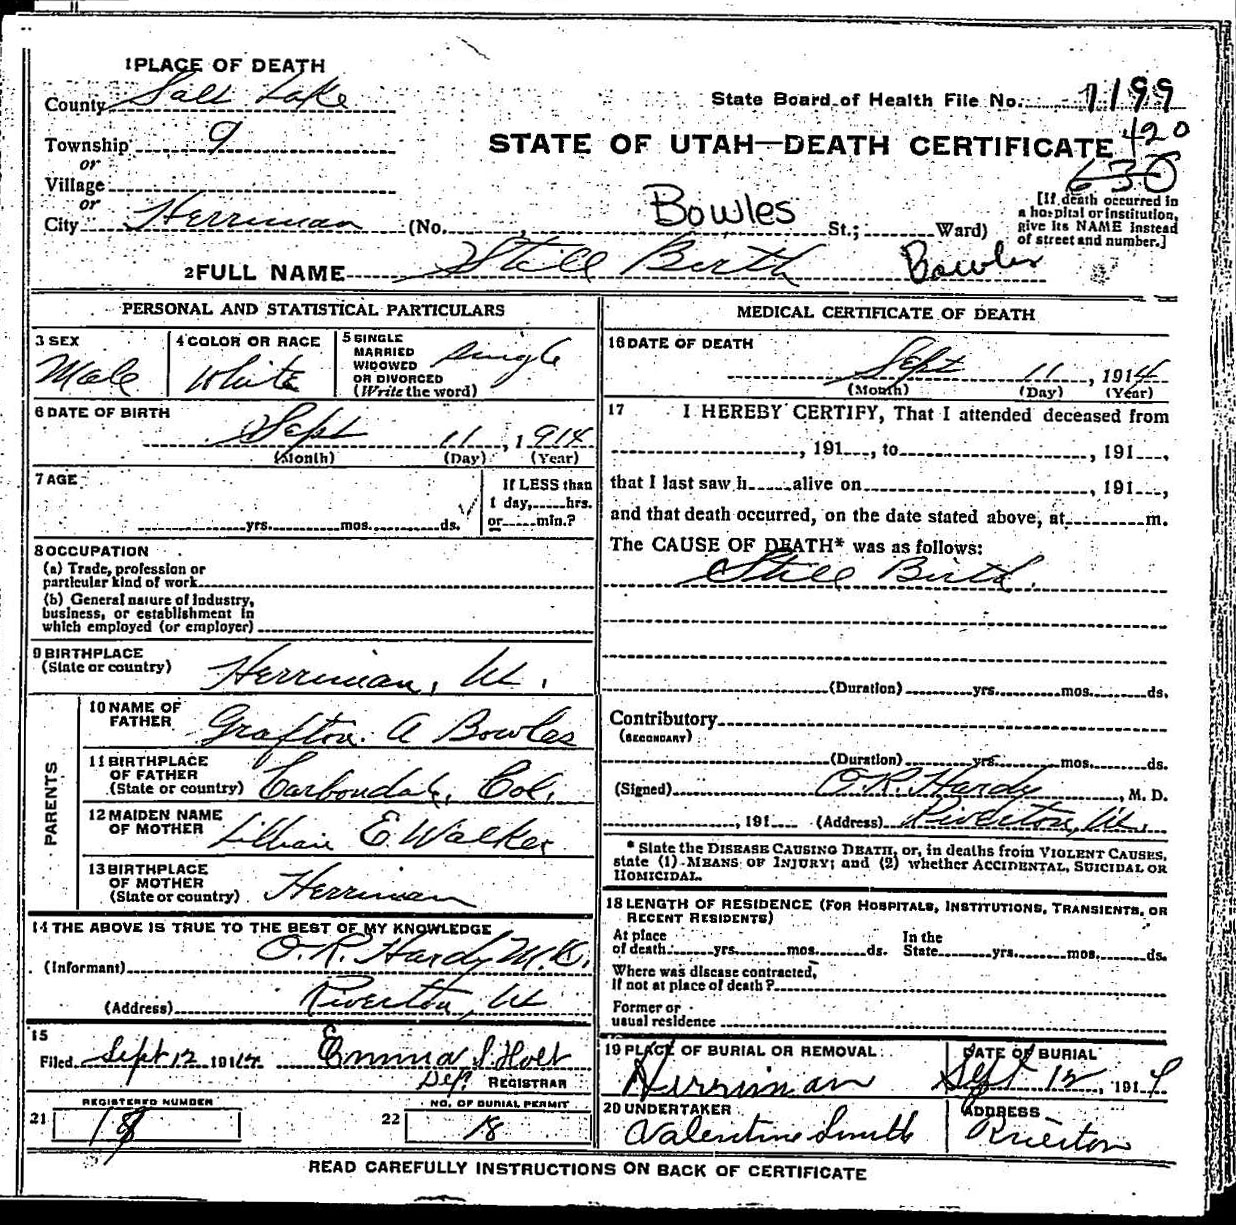 1 PLACE OF DEATH
County Salt Lake
State Board of Health File No. 1199
Township 9
STATE OF UTAH—DEATH CERTIFICATE 420
or
630
Village
or
City Herriman (No. , Bowles St.; Ward)
[If death occurred in a hospital or institution, give its NAME instead of street and number.]
2 FULL NAME Still Birth Bowles
PERSONAL AND STATISTICAL PARTICULARS
3 SEX
Male
4 COLOR OR RACE
White
5 SINGLE
MARRIED
WIDOWED
OR DIVORCED
(Write the word)
Single
6 DATE OF BIRTH
Sept 11, 1914
(Month) (Day) (Year)
7 AGE
yrs. mos. ds.
If LESS than
1 day, hrs.
or min.?
8 OCCUPATION
(a) Trade, profession or
particular kind of work
(b) General nature of Industry,
business, or establishment in
which employed (or employer)
9 BIRTHPLACE
(State or country)
Herriman, Ut.
PARENTS
10 NAME OF
FATHER
Grafton A Bowles
11 BIRTHPLACE
OF FATHER
(State or country)
Carbondale, Col.
12 MAIDEN NAME
OF MOTHER
Lillian E Walker
13 BIRTHPLACE
OF MOTHER
(State or country)
Herriman
14 THE ABOVE IS TRUE TO THE BEST OF MY KNOWLEDGE
(Informant) O. R. Hardy M.D.
(Address) Riverton, Ut
15
Filed Sept 12 1914 Emma S. Holt
Dep. REGISTRAR
REGISTERED NUMBER
21 18
NO. OF BURIAL PERMIT
22 18
MEDICAL CERTIFICATE OF DEATH
16 DATE OF DEATH
Sept 11, 1914
(Month) (Day) (Year)
17 I HEREBY CERTIFY, That I attended deceased from
, 191 , to , 191 ,
that I last saw h alive on , 191 ,
and that death occurred, on the date stated above, at m.
The CAUSE OF DEATH* was as follows:
Still Birth.
(Duration) yrs. mos. ds.
Contributory
(SECONDARY)
(Duration) yrs. mos. ds.
(Signed) O. R. Hardy, M. D.
, 191 (Address) Riverton, Ut.
* State the DISEASE CAUSING DEATH, or, in deaths from VIOLENT CAUSES,
state (1) MEANS OF INJURY; and (2) whether ACCIDENTAL, SUICIDAL OR
HOMICIDAL.
18 LENGTH OF RESIDENCE (FOR HOSPITALS, INSTITUTIONS, TRANSIENTS, OR
RECENT RESIDENTS)
At place
of death yrs. mos. ds.
In the
State yrs. mos. ds.
Where was disease contracted,
if not at place of death?
Former or
usual residence
19 PLACE OF BURIAL OR REMOVAL
Herriman
DATE OF BURIAL
Sept 12, 1914
20 UNDERTAKER
Valentine Smith
ADDRESS
Riverton
READ CAREFULLY INSTRUCTIONS ON BACK OF CERTIFICATE